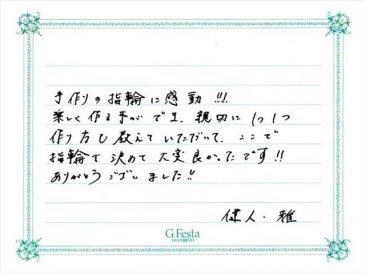 手作りの指輪に感動!!!
楽しく作る事ができ、親切に1つ1つ
作り方も教えていただいて、ここで
指輪て決めて大変良かったです!!
ありがとうございました!!
健人・雅
G.Festa